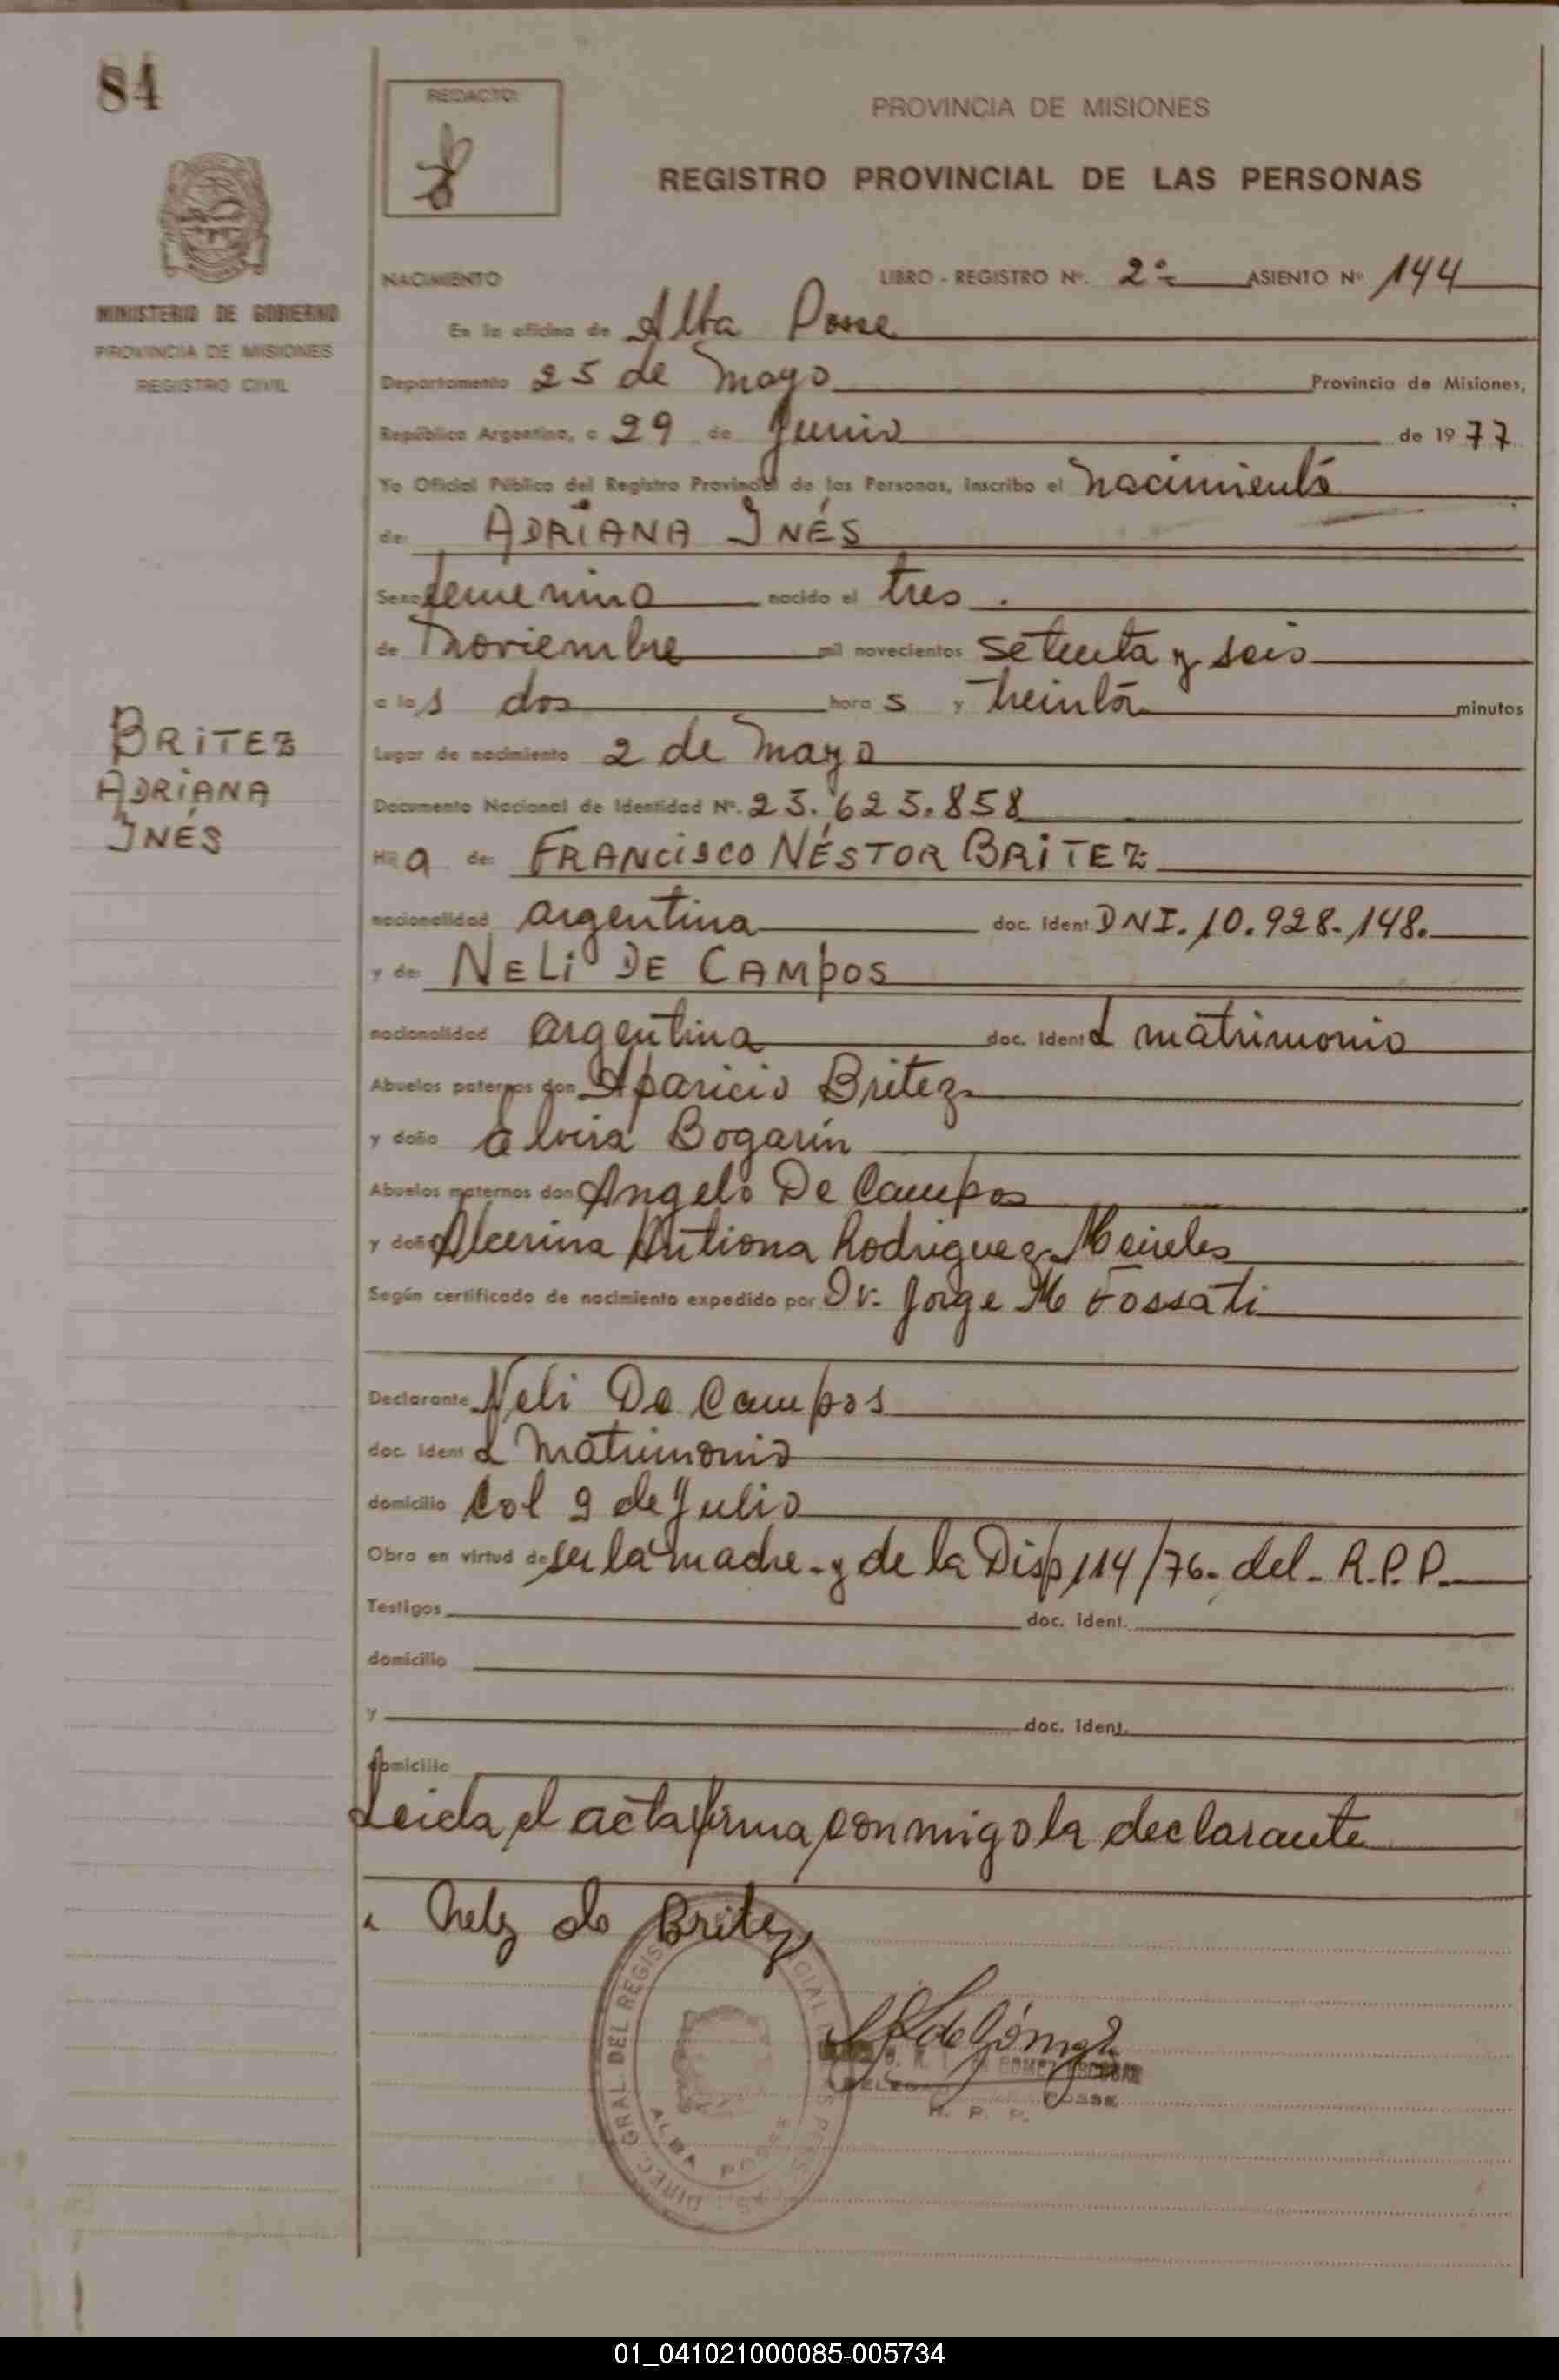 84
REDACTO:
PROVINCIA DE MISIONES
REGISTRO PROVINCIAL DE LAS PERSONAS
NACIMIENTO
LIBRO - REGISTRO Nº. 2º ASIENTO Nº 144
MINISTERIO DE GOBIERNO
PROVINCIA DE MISIONES
REGISTRO CIVIL
En la oficina de Alba Posse
Departamento 25 de Mayo Provincia de Misiones,
República Argentina, a 29 de Junio de 1977
Yo Oficial Público del Registro Provincial de las Personas, inscribo el nacimiento
de ADRIANA INÉS
Sexo femenino nacido el tres.
de noviembre mil novecientos setenta y seis
a las dos horas y treinta minutos
BRITEZ
ADRIANA
INÉS
Lugar de nacimiento 2 de Mayo
Documento Nacional de Identidad Nº. 25.625.858
Hija de: FRANCISCO NÉSTOR BRITEZ
nacionalidad argentina doc. ident DNI. 10.928.148.
y de: NELI DE CAMPOS
nacionalidad argentina doc. ident L matrimonio
Abuelos paternos don Aparicio Britez
y doña Elvira Bogarín
Abuelos maternos don Angelo De Campos
y doña Rodriguez Meireles
Según certificado de nacimiento expedido por Dr. Jorge M Fossati
Declarante Neli De Campos
doc. ident L Matrimonio
domicilio Col 9 de Julio
Obra en virtud de ser la madre - y de la Disp 114/76 - del - R.P.P.
Testigos doc. ident.
domicilio
y doc. ident.
domicilio
Leida el acta firma conmigo la declarante
Nely de Britez
DIREC. GRAL. DEL REGIS
ALBA POSSE
de Gómez
R. P. P.
01_041021000085-005734